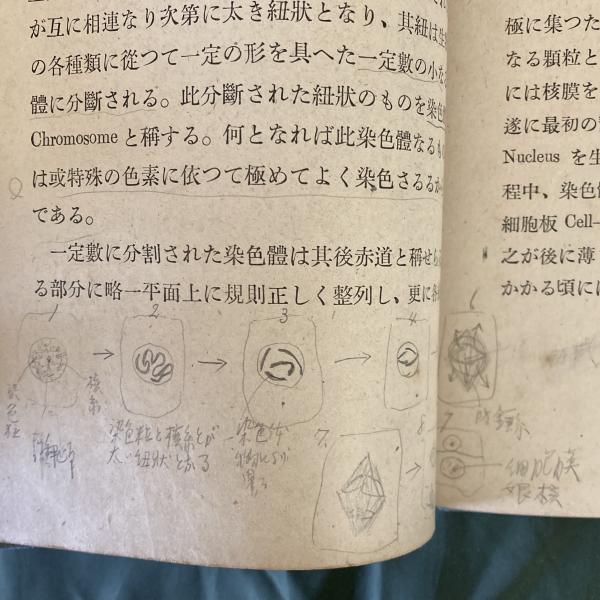 が互に相連なり次第に太き紐狀となり、其紐は生
の各種類に從つて一定の形を具へた一定數の小な
體に分斷される。此分斷された紐狀のものを染色
Chromosome と稱する。何となれば此染色體なるも
は或特殊の色素に依つて極めてよく染色さるるか
である。
一定數に分割された染色體は其後赤道と稱せら
る部分に略一平面上に規則正しく整列し、更に各
極に集つた
なる顆粒と
には核膜を
遂に最初の
Nucleus を生
程中、染色
細胞板 Cell-
之が後に薄
かかる頃には
1
2
3
4
6
7
8
染色粒と核糸とが
太い紐狀となる
染色体
細胞膜
娘核